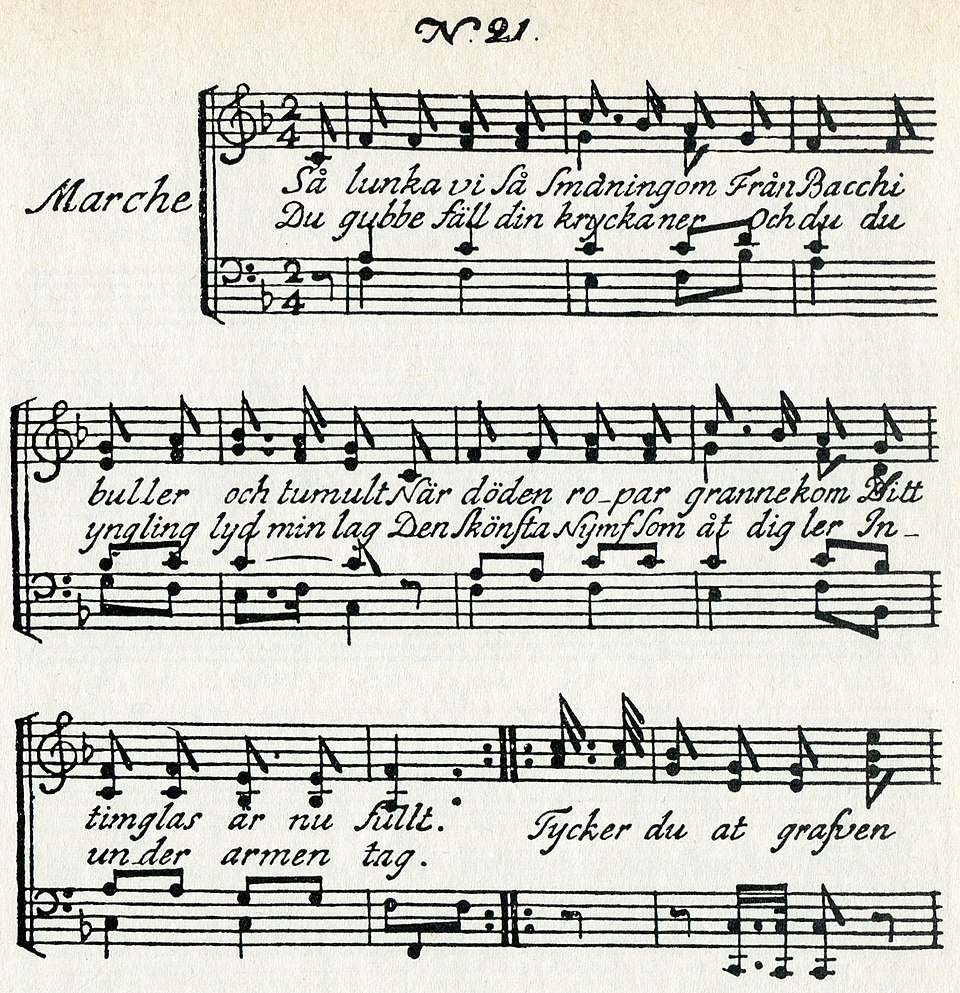 N. 21.
Marche
Så lunka vi så småningom Från Bacchi
Du gubbe fäll din krycka ner Och du du
2/4
2/4
buller och tumult. När döden ro-par granne kom Ditt
yngling lyd min lag Den skönsta Nymf som åt dig ler In-
timglas är nu fullt. Tycker du at grafven
un-der armen tag.